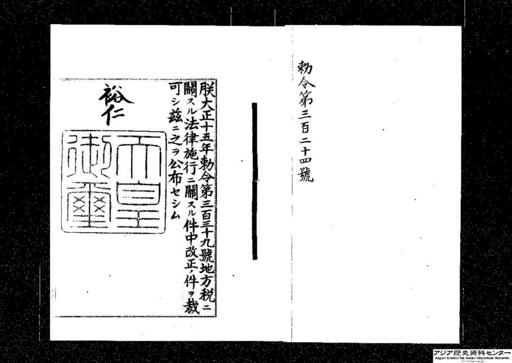 勅令第三百二十四號
朕大正十五年勅令第三百三十九號地方税ニ
關スル法律施行ニ關スル件中改正ノ件ヲ裁
可シ茲ニ之ヲ公布セシム
裕仁
天皇
御璽
アジア歴史資料センター
Japan Center for Asian Historical Records